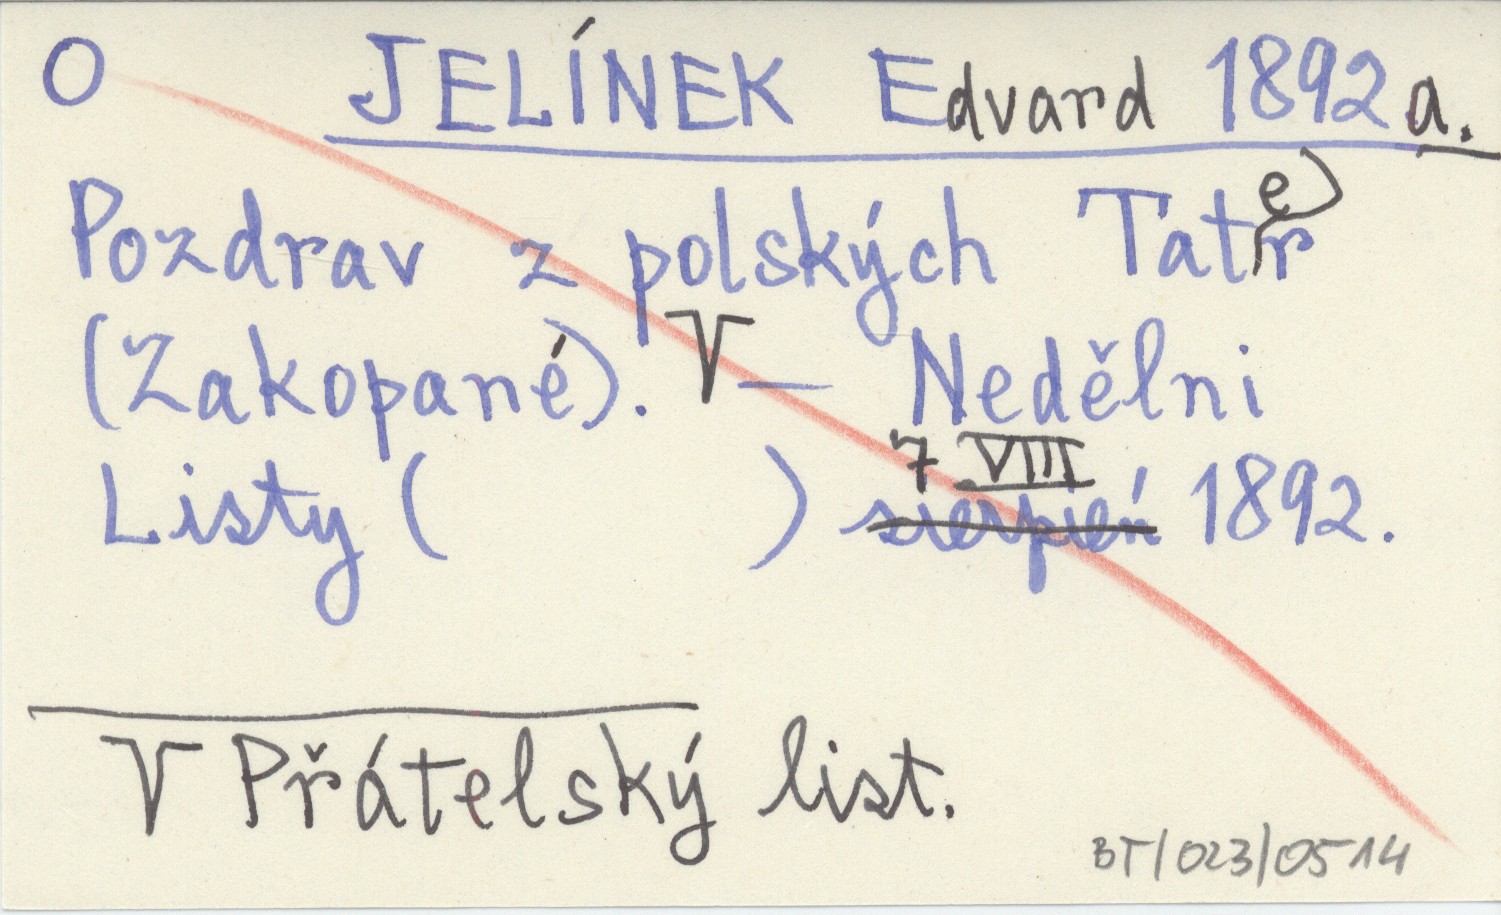 O JELÍNEK Edvard 1892 a.
Pozdrav z polských Tater
(Zakopané). V — Nedělni
7 VIII
Listy ( ) sierpień 1892.
V Přátelský list.
BT/023/0514